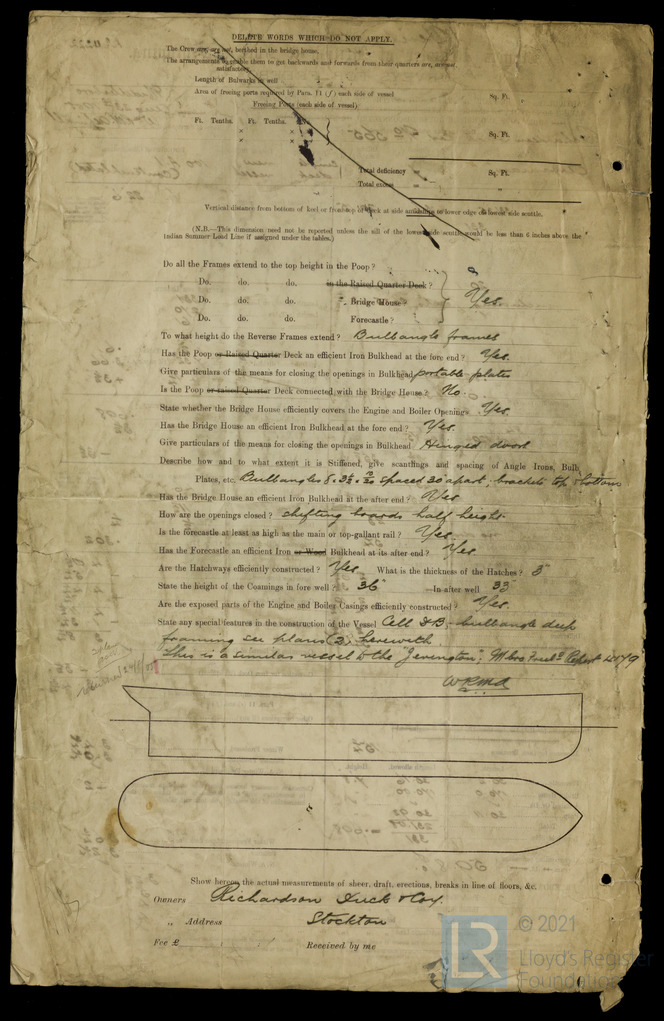 DELETE WORDS WHICH DO NOT APPLY.
The Crew are, are not, berthed in the bridge house.
The arrangements to enable them to get backwards and forwards from their quarters are, are not,
satisfactory.
Length of Bulwarks in well
Area of freeing ports required by Para. 11 (f) each side of vessel Sq. Ft.
Freeing Ports (each side of vessel)
Ft. Tenths. Ft. Tenths.
×
× Sq. Ft.
×
Total deficiency = Sq. Ft.
Total excess = "
Vertical distance from bottom of keel or from top of deck at side amidships to lower edge of lowest side scuttle.
(N.B.—This dimension need not be reported unless the sill of the lowest side scuttle would be less than 6 inches above the
Indian Summer Load Line if assigned under the tables.)
Do all the Frames extend to the top height in the Poop?
Do. do. do. in the Raised Quarter Deck?
Do. do. do. " Bridge House? Yes.
Do. do. do. Forecastle?
To what height do the Reverse Frames extend? Bulbangle frames
Has the Poop or Raised Quarter Deck an efficient Iron Bulkhead at the fore end? Yes.
Give particulars of the means for closing the openings in Bulkhead portable plates
Is the Poop or raised Quarter Deck connected with the Bridge House? No.
State whether the Bridge House efficiently covers the Engine and Boiler Openings Yes.
Has the Bridge House an efficient Iron Bulkhead at the fore end? Yes.
Give particulars of the means for closing the openings in Bulkhead Hinged doors
Describe how and to what extent it is Stiffened, give scantlings and spacing of Angle Irons, Bulb
Plates, etc. Bulbangles spaced 30 apart, brackets top & bottom
Has the Bridge House an efficient Iron Bulkhead at the after end? Yes.
How are the openings closed? shifting boards half height.
Is the forecastle at least as high as the main or top-gallant rail? Yes.
Has the Forecastle an efficient Iron or Wood Bulkhead at its after end? Yes.
Are the Hatchways efficiently constructed? Yes. What is the thickness of the Hatches? 3
State the height of the Coamings in fore well? 36 In after well 33
Are the exposed parts of the Engine and Boiler Casings efficiently constructed? Yes.
State any special features in the construction of the Vessel Cell DB, bulbangle deep
framing see plans (2) herewith
This is a similar vessel to the "Jevington", Report
Show hereon the actual measurements of sheer, draft, erections, breaks in line of floors, &c.
Owners Richardson Duck & Coy.
" Address Stockton
Fee £ Received by me
© 2021
LR Lloyd's Register
Foundation